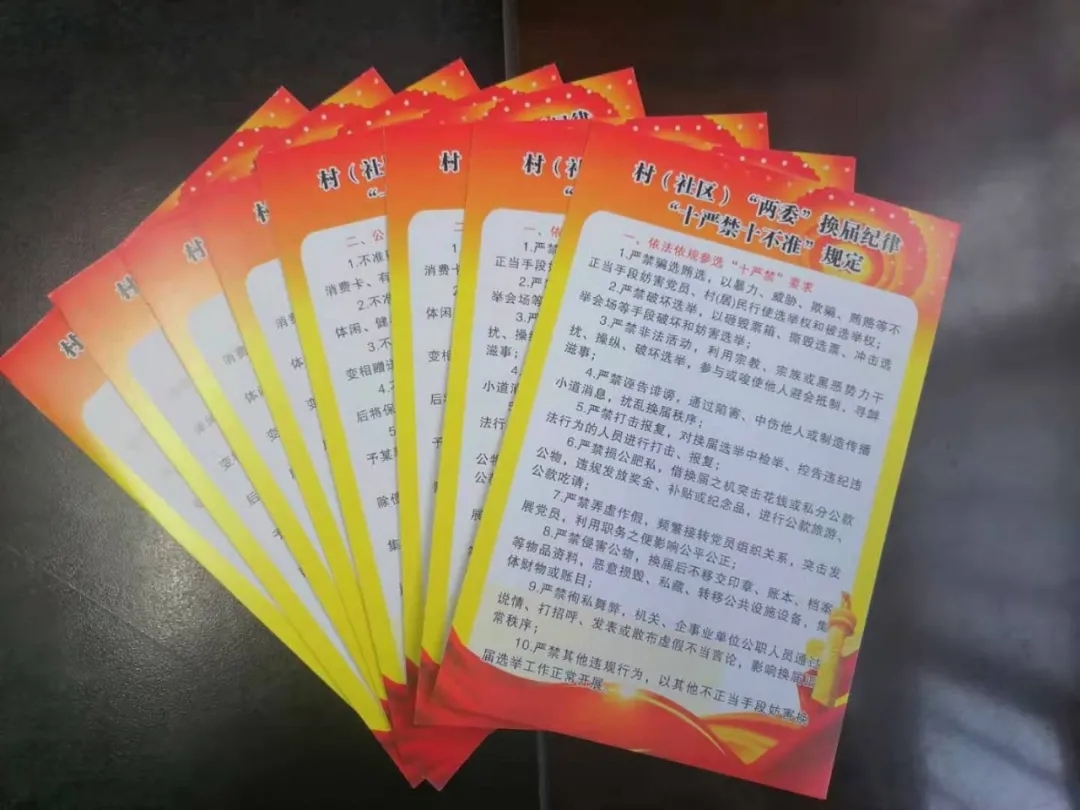 村（社区）“两委”换届纪律
“十严禁十不准”规定
一、依法依规参选“十严禁”要求
1.严禁骗选贿选，以暴力、威胁、欺骗、贿赂等不
正当手段妨害党员、村(居)民行使选举权和被选举权；
2.严禁破坏选举，以砸毁票箱、撕毁选票、冲击选
举会场等手段破坏和妨害选举；
3.严禁非法活动，利用宗教、宗族或黑恶势力干
扰、操纵、破坏选举，参与或唆使他人避会抵制、寻衅
滋事；
4.严禁诬告诽谤，通过陷害、中伤他人或制造传播
小道消息，扰乱换届秩序；
5.严禁打击报复，对换届选举中检举、控告违纪违
法行为的人员进行打击、报复；
6.严禁损公肥私，借换届之机突击花钱或私分公款
公物，违规发放奖金、补贴或纪念品，进行公款旅游、
公款吃请；
7.严禁弄虚作假，频繁接转党员组织关系，突击发
展党员，利用职务之便影响公平公正；
8.严禁侵害公物，换届后不移交印章、账本、档案
等物品资料，恶意损毁、私藏、转移公共设施设备，集
体财物或账目；
9.严禁徇私舞弊，机关、企事业单位公职人员通过
说情、打招呼、发表或散布虚假不当言论，影响换届正
常秩序；
10.严禁其他违规行为，以其他不正当手段妨害换
届选举工作正常开展
村（社
一、依
1.严
正当手
2.
举会场
3.
扰、
滋事；
4
小道消
法行
公物
公款
展
村
二、
消费
体闲
变相
后
村（社
二、公
1.不准
消费卡、有
2.不准
体闲、健
3.不
变相赠送
4.
后将保
5
予某
除债
集
村
消费
体
变
后
予
村
村
村